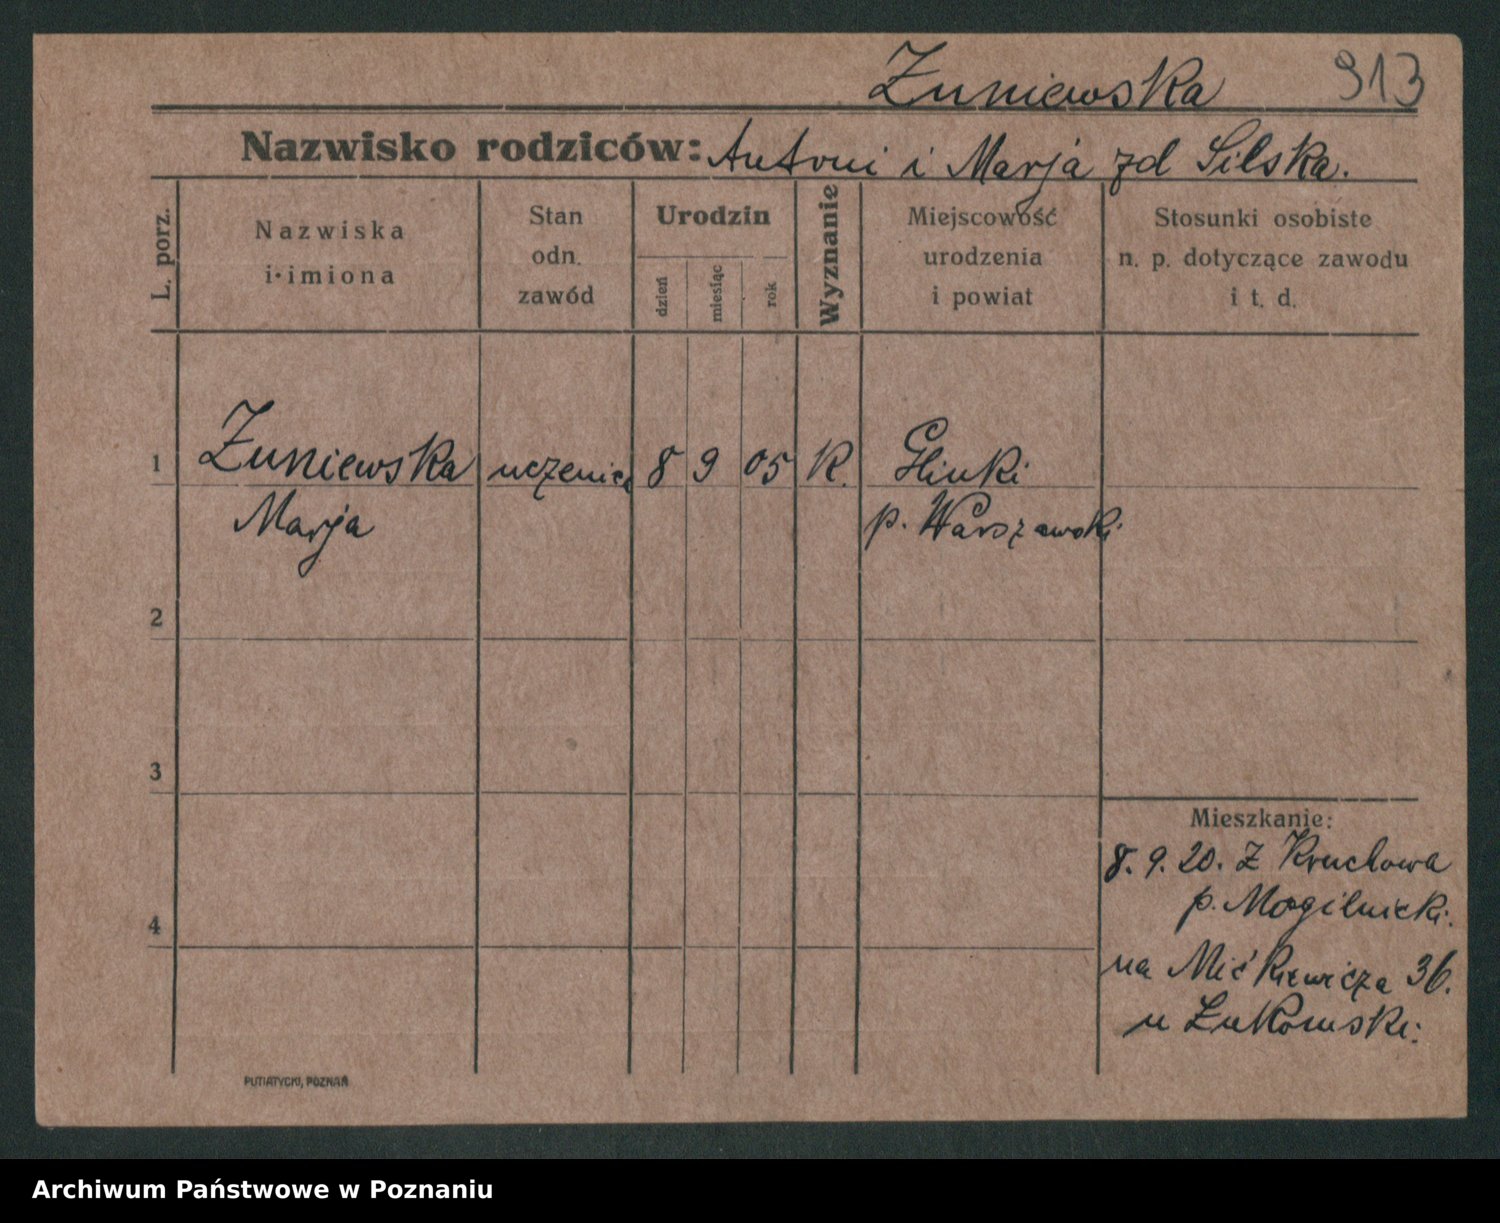 Żuniewska 913
Nazwisko rodziców: Antoni i Marja zd Silska.
L. porz.
Nazwiska
i imiona
Stan
odn.
zawód
Urodzin
dzień
miesiąc
rok
Wyznanie
Miejscowość
urodzenia
i powiat
Stosunki osobiste
n. p. dotyczące zawodu
i t. d.
1 Żuniewska uczenica 8 9 05 K. Glinki
Marja p. Warszawski
2
3
4
Mieszkanie:
8. 9. 20. z Kruchowa
p. Mogilnicki.
na Mićkiewicza 36.
u Łukomski.
PUTIATYCKI, POZNAŃ
Archiwum Państwowe w Poznaniu